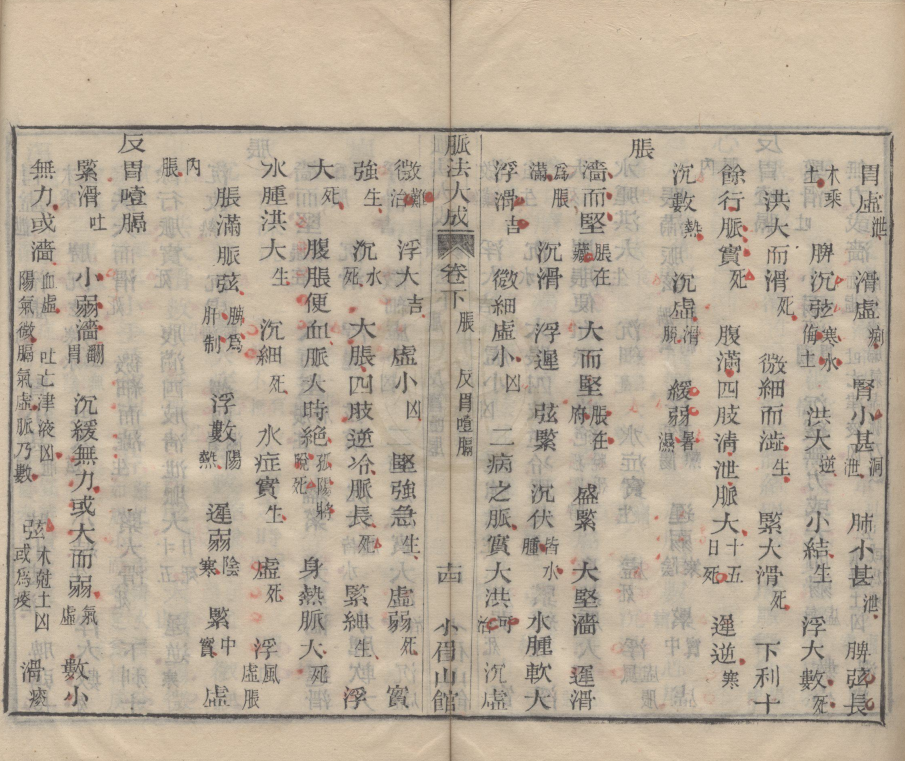 胃虛泄 滑虛痢 腎小甚洞泄 肺小甚泄 脾弦長
木乘土 脾沉弦寒水侮土 洪大逆 小結生 浮大數死
洪大而滑死 微細而澁生 緊大滑死 下利十
餘行脈實死 腹滿四肢清泄脈大十五日死 遲逆寒
脹
沉數熱 沉虛滑 緩弱暑濕
濇而堅脹在藏 大而堅脹在府 盛緊 大堅濇 遲滑
爲脹滿 沉滑 浮遲 弦緊 沉伏皆水腫 水腫軟大
浮滑吉 微細虛小凶 二病之脈實大洪可治 沉虛
脈法大成 卷下 脹 反胃噎膈 十四 小眉山館
微難治 浮大吉 虛小凶 堅強急生 虛弱死 實
強生 沉水死 大脹四肢逆冷脈長死 緊細生 浮
大死 腹脹便血脈大時絕孤陽將脫死 身熱脈大死
水腫洪大生 沉細死 水症實生 虛死 浮風虛脹
脹滿脈弦脾爲肝制 浮數陽熱 遲弱陰寒 緊中實 虛
內脹
反胃噎膈
緊滑吐 小弱濇翻胃 沉緩無力或大而弱氣虛 數小
無力或濇血虛 吐亡津液凶 陽氣微膈氣虛脈乃數 弦木尅土凶或爲痰 滑痰